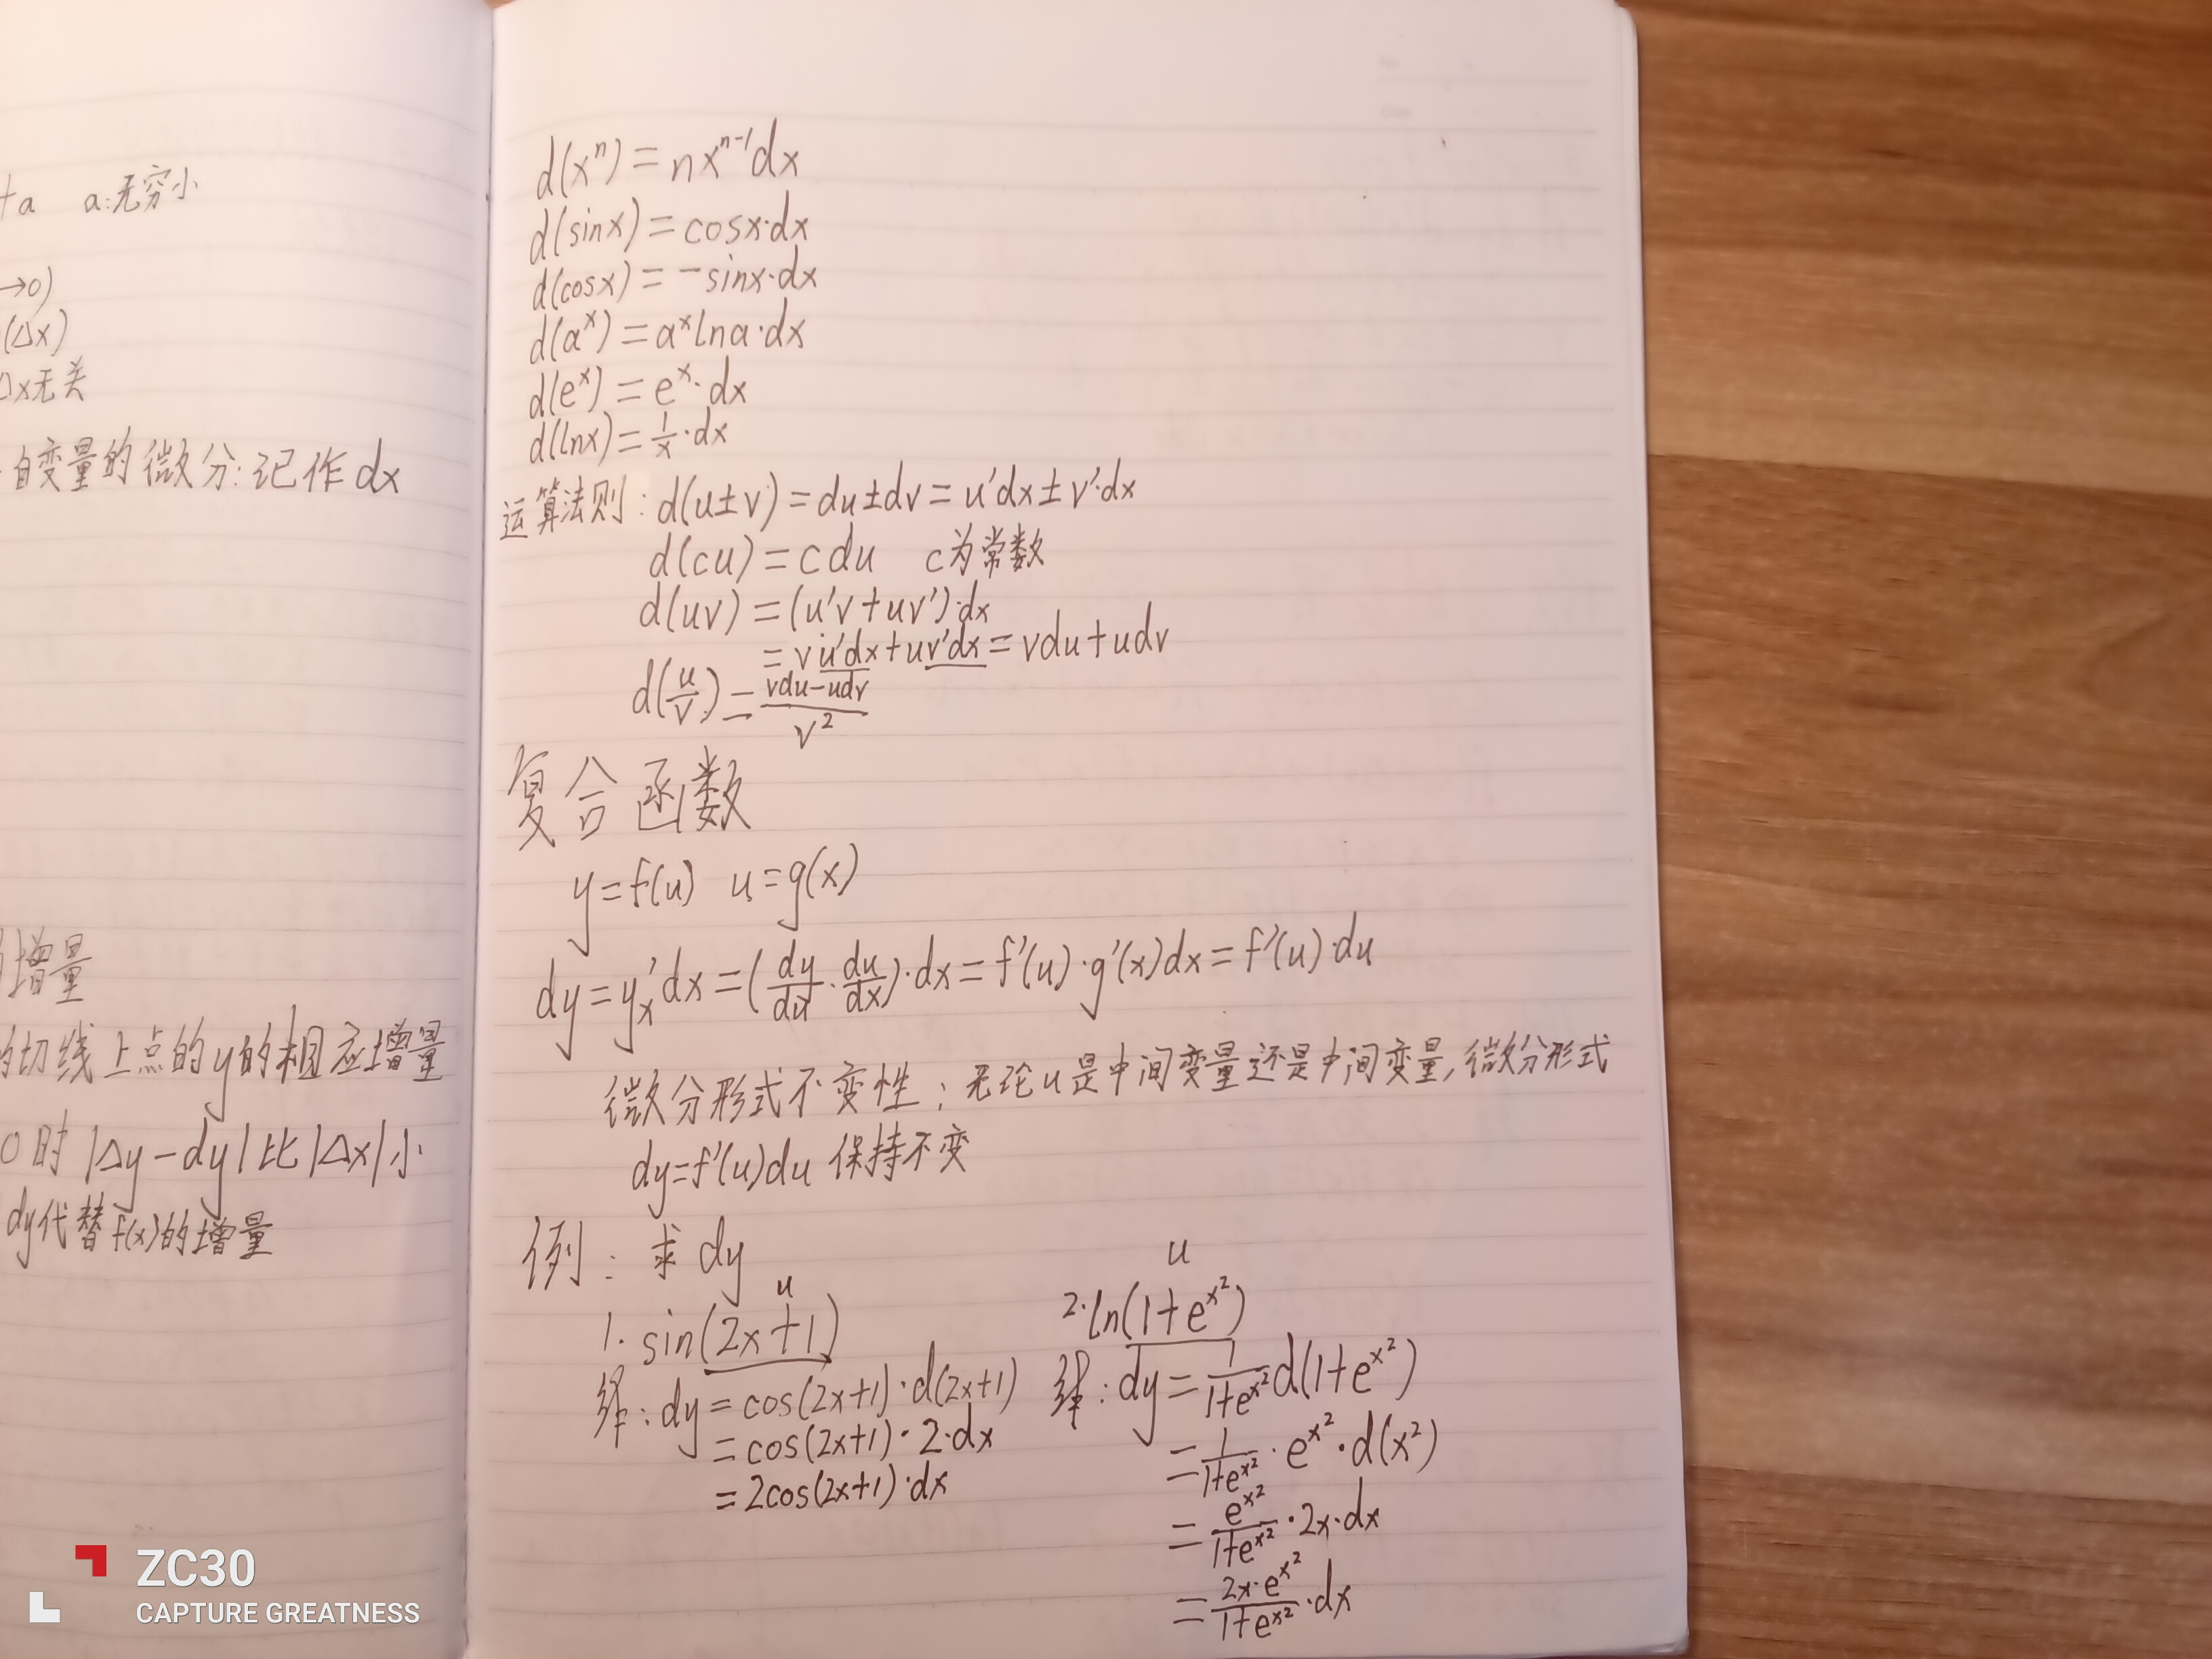 +a a:无穷小
→0)
(Δx)
Δx无关
自变量的微分:记作dx
增量
的切线上点的y的相应增量
0时|Δy-dy|比|Δx|小
dy代替f(x)的增量
d(xⁿ)=nxⁿ⁻¹dx
d(sinx)=cosx·dx
d(cosx)=-sinx·dx
d(aˣ)=aˣlna·dx
d(eˣ)=eˣ·dx
d(lnx)=1/x·dx
运算法则:d(u±v)=du±dv=u'dx±v'·dx
d(cu)=cdu c为常数
d(uv)=(u'v+uv')·dx
=vu'dx+uv'dx=vdu+udv
d(u/v)=(vdu-udv)/v²
复合函数
y=f(u) u=g(x)
dy=y'ₓdx=(dy/du·du/dx)·dx=f'(u)·g'(x)dx=f'(u)·du
微分形式不变性:无论u是中间变量还是中间变量,微分形式
dy=f'(u)du保持不变
例:求dy
u
1.sin(2x+1)
解:dy=cos(2x+1)·d(2x+1)
=cos(2x+1)·2·dx
=2cos(2x+1)·dx
u
2.ln(1+e^x²)
解:dy=1/(1+e^x²)d(1+e^x²)
=1/(1+e^x²)·e^x²·d(x²)
=e^x²/(1+e^x²)·2x·dx
=2x·e^x²/(1+e^x²)·dx
ZC30
CAPTURE GREATNESS